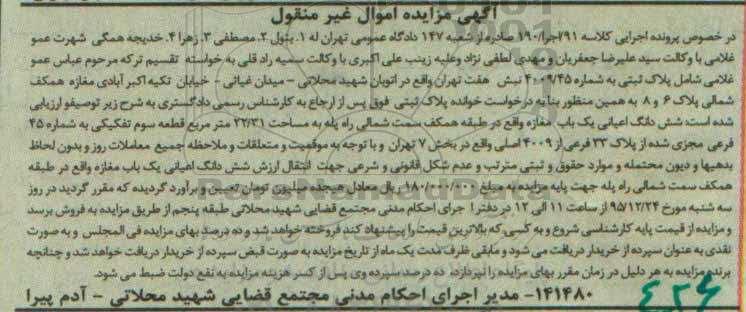 آگهی مزایده اموال غیر منقول
در خصوص پرونده اجرایی کلاسه ۹۱/اجرا/۱۹۰ صادره از شعبه ۱۴۷ دادگاه عمومی تهران له ۱. بتول ۲. مصطفی ۳. زهرا ۴. خدیجه همگی شهرت عمو
غلامی با وکالت سید علیرضا جعفریان و مهدی لطفی نژاد وعلیه زینب علی اکبری با وکالت سمیه راد قلی به خواسته تقسیم ترکه مرحوم عباس عمو
غلامی شامل پلاک ثبتی به شماره ۴۰۰۹/۴۵ نبش هفت تهران واقع در اتوبان شهید محلاتی - میدان غیاثی - خیابان تکیه اکبر آبادی مغازه همکف
شمالی پلاک ۶ و ۸ به همین منظور بنا به درخواست خوانده پلاک ثبتی فوق پس از ارجاع به کارشناس رسمی دادگستری به شرح زیر توصیفو ارزیابی
شده است: شش دانگ اعیانی یک باب مغازه واقع در طبقه همکف سمت شمالی راه پله به مساحت ۲۲/۳۱ متر مربع قطعه سوم تفکیکی به شماره ۴۵
فرعی مجزی شده از پلاک ۲۳ فرعی از ۴۰۰۹ اصلی واقع در بخش ۷ تهران و با توجه به موقعیت و متعلقات و ملاحظه جمیع معاملات روز و بدون لحاظ
بدهیها و دیون محتمله و موارد حقوقی و ثبتی مترتب و عدم شکل قانونی و شرعی جهت انتقال ارزش شش دانگ اعیانی یک باب مغازه واقع در طبقه
همکف سمت شمالی راه پله جهت پایه مزایده به مبلغ ۱۸۰/۰۰۰/۰۰۰ ریال معادل هیجده میلیون تومان تعیین و برآورد گردیده که مقرر گردید در روز
سه شنبه مورخ ۹۵/۱۲/۲۴ از ساعت ۱۱ الی ۱۲ در دفتر اجرای احکام مدنی مجتمع قضایی شهید محلاتی طبقه پنجم از طریق مزایده به فروش برسد
و مزایده از قیمت پایه کارشناسی شروع و به کسی که بالاترین قیمت را پیشنهاد کند فروخته خواهد شد و ده درصد بهای مزایده فی المجلس و به صورت
نقدی به عنوان سپرده از خریدار دریافت می شود و مابقی ظرف مدت یک ماه از تاریخ مزایده به صورت قبض سپرده از خریدار دریافت خواهد شد و چنانچه
برنده مزایده به هر دلیل در زمان مقرر بهای مزایده را نپردازد ده درصد سپرده وی پس از کسر هزینه مزایده به نفع دولت ضبط می شود.
۱۴۱۴۸۰- مدیر اجرای احکام مدنی مجتمع قضایی شهید محلاتی - آدم پیرا